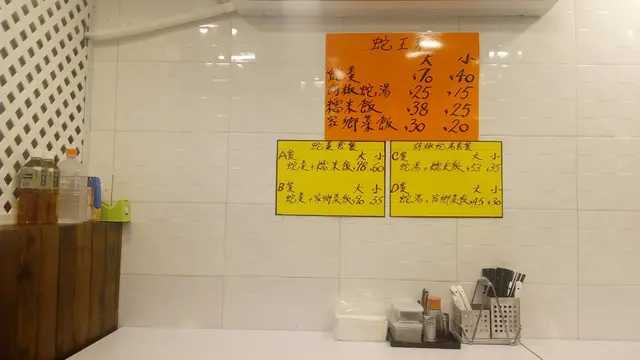 蛇王
大 小
蛇羹 70 40
胡椒蛇湯 25 15
糯米飯 38 25
家鄉菜飯 30 20
蛇羹套餐
A餐 大 小
蛇羹+糯米飯 98 60
B餐 大 小
蛇羹+家鄉菜飯 90 55
胡椒蛇湯套餐
C餐 大 小
蛇湯+糯米飯 53 35
D餐 大 小
蛇湯+家鄉菜飯 45 30